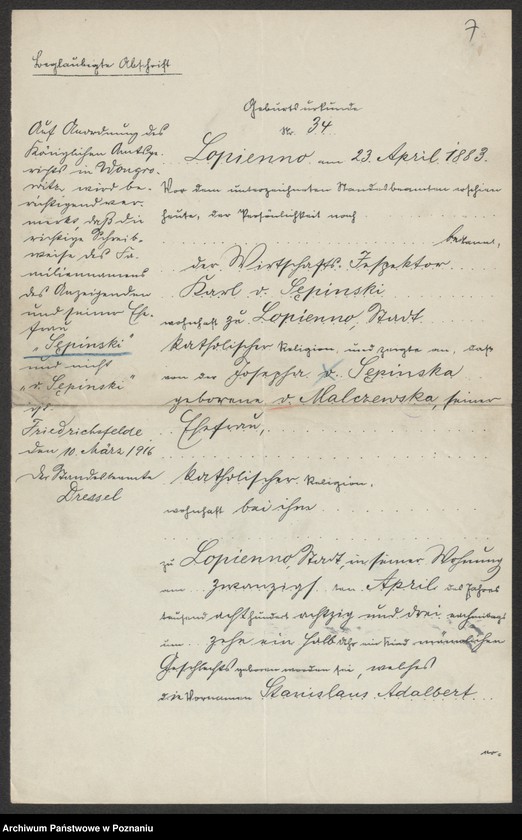 7
Beglaubigte Abschrift
Geburtsurkunde
Nr. 34
Lopienno am 23. April 1883.
Vor dem unterzeichneten Standesbeamten erschien
heute, der Persönlichkeit nach
bekannt,
der Wirtschafts-Inspektor
Karl v. Sępinski
wohnhaft zu Lopienno, Stadt
katholischer Religion, und zeigte an, daß
von der Josepha v. Sępinska
geborene v. Malczewska, seiner
Ehefrau,
katholischer Religion,
wohnhaft bei ihm
zu Lopienno Stadt, in seiner Wohnung
am zwanzigs ten April des Jahres
tausend achthundert achtzig und drei vormittags
um zehn ein halb Uhr ein Kind männlichen
Geschlechts geboren worden sei, welches
die Vornamen Stanislaus Adalbert
Auf Anordnung des
Königlichen Amtsge-
richts in Wongro-
witz, wird be-
richtigend ver-
merkt, daß die
richtige Schreib-
weise des Fa-
miliennamens
des Anzeigenden
und seiner Ehe-
frau
"Sępinski"
und nicht
"v. Sępinski"
ist.
Friedrichsfelde
den 10. März 1916
Der Standesbeamte
Dressel
Archiwum Państwowe w Poznaniu